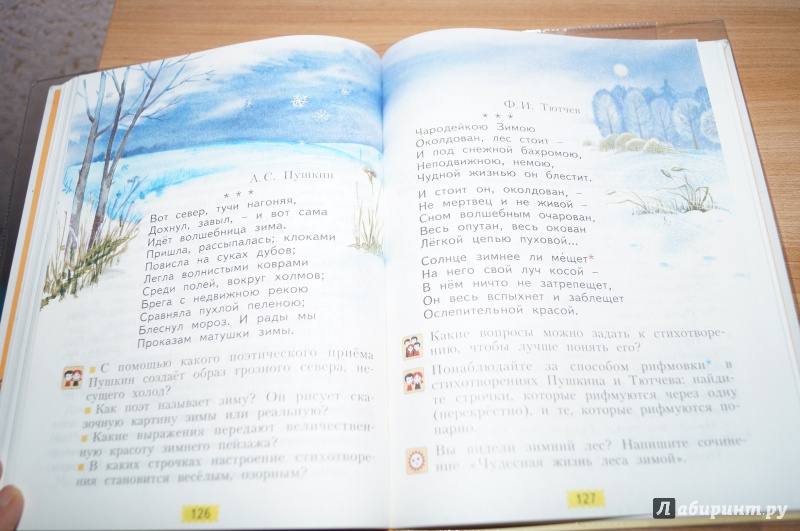 А.С. Пушкин
* * *
Вот север, тучи нагоняя,
Дохнул, завыл, – и вот сама
Идёт волшебница зима.
Пришла, рассыпалась; клоками
Повисла на суках дубов;
Легла волнистыми коврами
Среди полей, вокруг холмов;
Брега с недвижною рекою
Сравняла пухлой пеленою;
Блеснул мороз. И рады мы
Проказам матушки зимы.
С помощью какого поэтического приёма
Пушкин создаёт образ грозного севера, не-
сущего холод?
Как поэт называет зиму? Он рисует ска-
зочную картину зимы или реальную?
Какие выражения передают величествен-
ную красоту зимнего пейзажа?
В каких строчках настроение стихотворе-
ния становится весёлым, озорным?
126
Ф.И. Тютчев
* * *
Чародейкою Зимою
Околдован, лес стоит –
И под снежной бахромою,
Неподвижною, немою,
Чудной жизнью он блестит.
И стоит он, околдован, –
Не мертвец и не живой –
Сном волшебным очарован,
Весь опутан, весь окован
Лёгкой цепью пуховой...
Солнце зимнее ли мещет*
На него свой луч косой –
В нём ничто не затрепещет,
Он весь вспыхнет и заблещет
Ослепительной красой.
Какие вопросы можно задать к стихотворе-
нию, чтобы лучше понять его?
Понаблюдайте за способом рифмовки* в
стихотворениях Пушкина и Тютчева: найди-
те строчки, которые рифмуются через одну
(перекрёстно), и те, которые рифмуются по-
парно.
Вы видели зимний лес? Напишите сочине-
ние «Чудесная жизнь леса зимой».
127
Лабиринт.ру